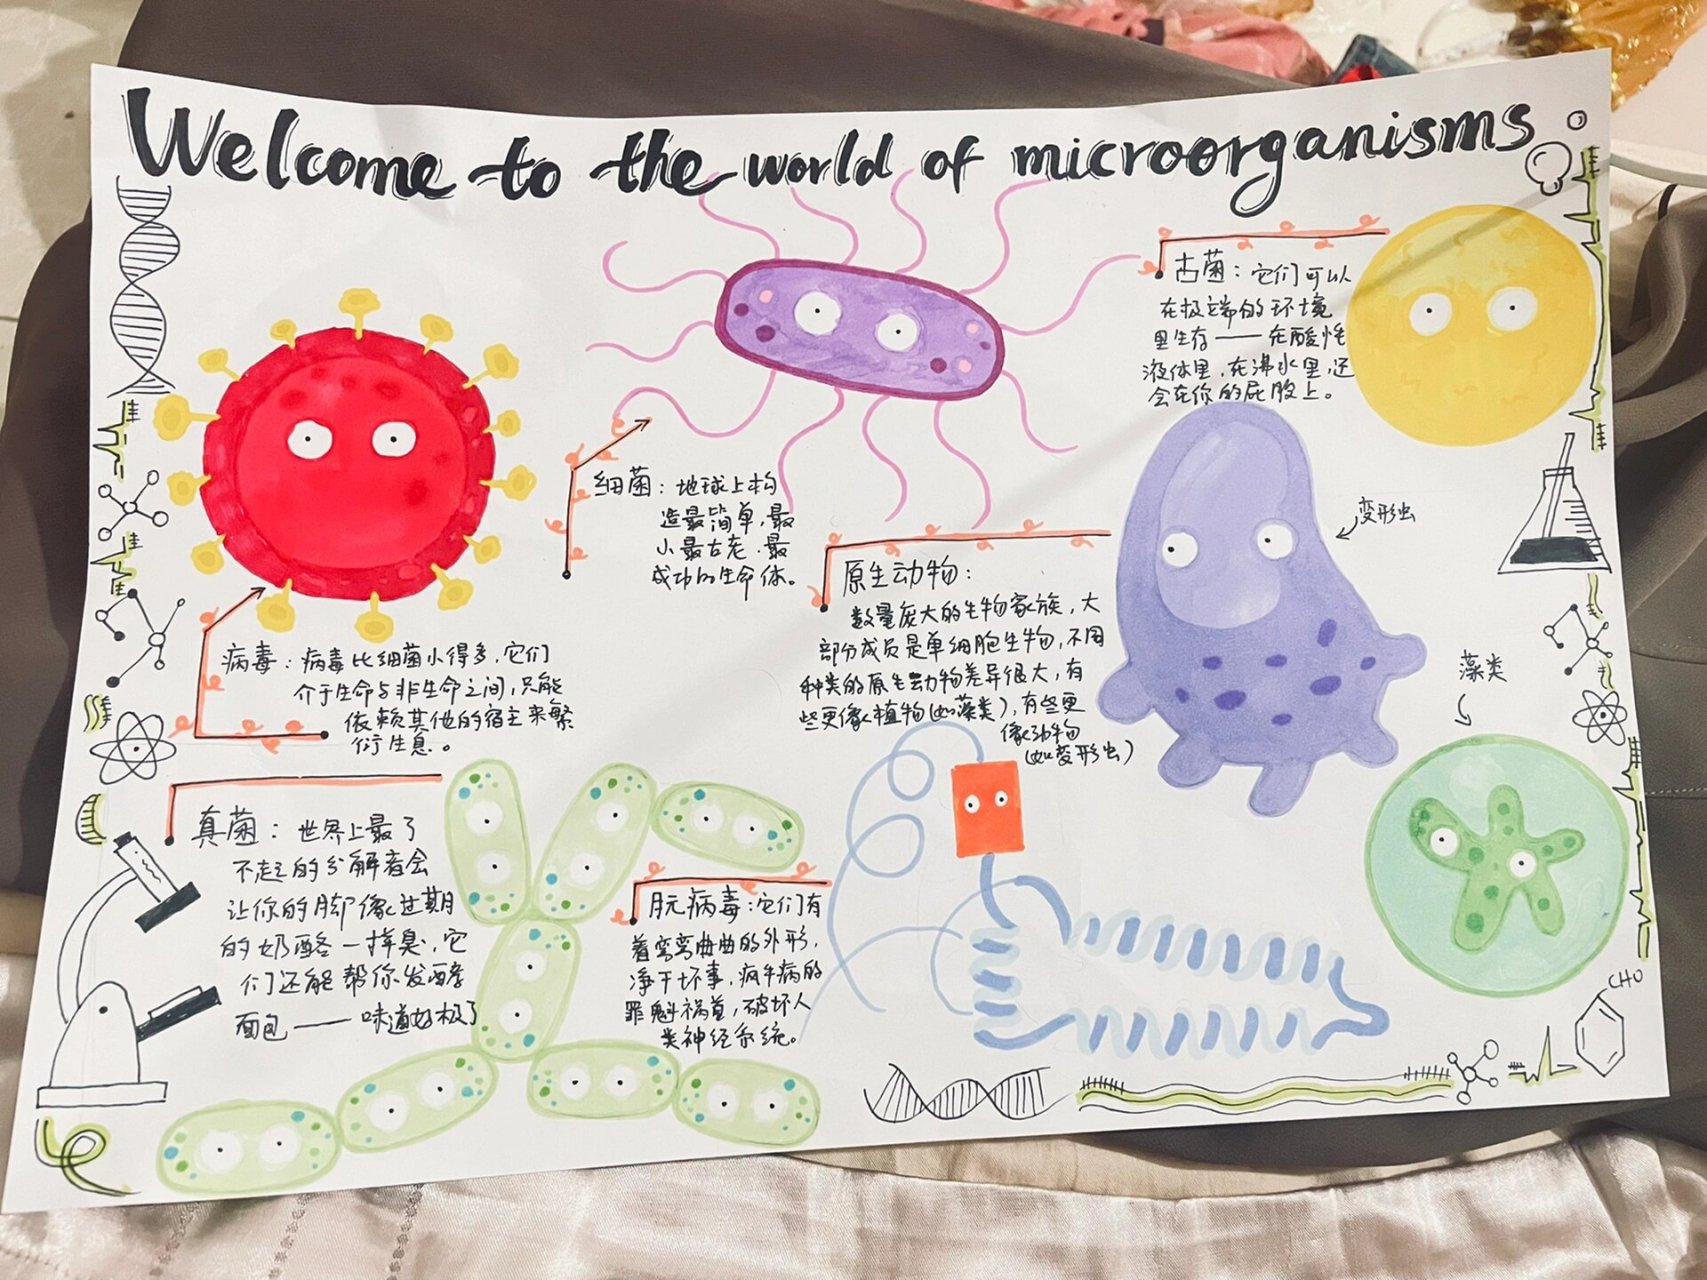 Welcome to the world of microorganisms
古菌：它们可以
在极端的环境
里生存——在酸性
液体里，在沸水里，还
会在你的屁股上。
细菌：地球上构
造最简单，最
小最古老、最
成功的生命体。
变形虫
原生动物：
数量庞大的生物家族，大
部分成员是单细胞生物，不同
种类的原生动物差异很大，有
些更像植物（如藻类），有些更
像动物
（如变形虫）
藻类
病毒：病毒比细菌小得多，它们
介于生命与非生命之间，只能
依赖其他的宿主来繁
衍生息。
真菌：世界上最了
不起的分解者会
让你的脚像过期
的奶酪一样臭，它
们还能帮你发酵
面包——味道好极了
朊病毒：它们有
着弯弯曲曲的外形，
净干坏事，疯牛病的
罪魁祸首，破坏人
类神经系统。
CHO